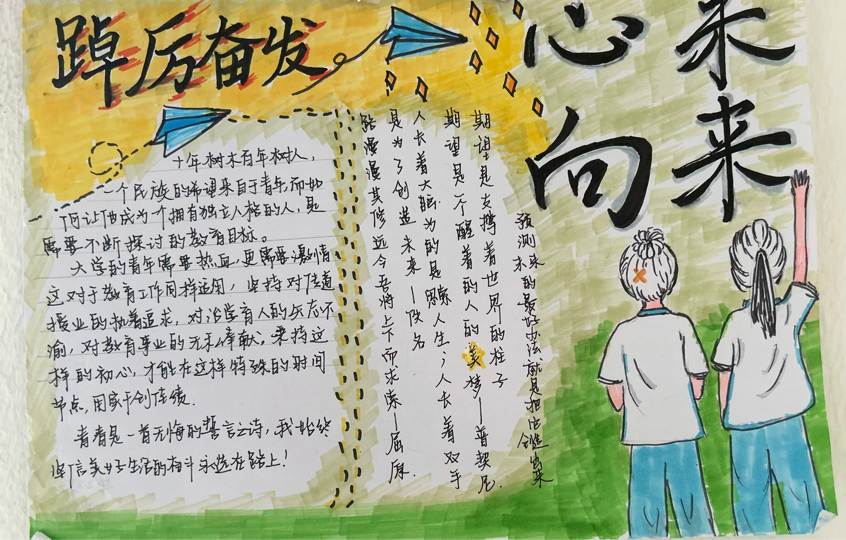 踔厉奋发
心向未来
十年树木百年树人，
一个民族的希望来自于青年,而如
何让他成为一个拥有独立人格的人,是
需要不断探讨的教育目标。
大学的青年需要热血,更需要激情
这对于教育工作同样适用，坚持对传道
授业的执着追求,对治学育人的矢志不
渝,对教育事业的无私奉献。秉持这
样的初心,才能在这样特殊的时间
节点,
青春是一首无悔的誓言之诗,我始终
坚信美好生活的奋斗永远在路上!
预测未来的最好方法就是把它创造出来
期望是支撑着世界的柱子
期望是一个醒着的人的美梦—普契尼.
人长着大脑为的是思索人生;人长着双手
是为了创造未来—佚名
路漫漫其修远兮吾将上下而求索—屈原.